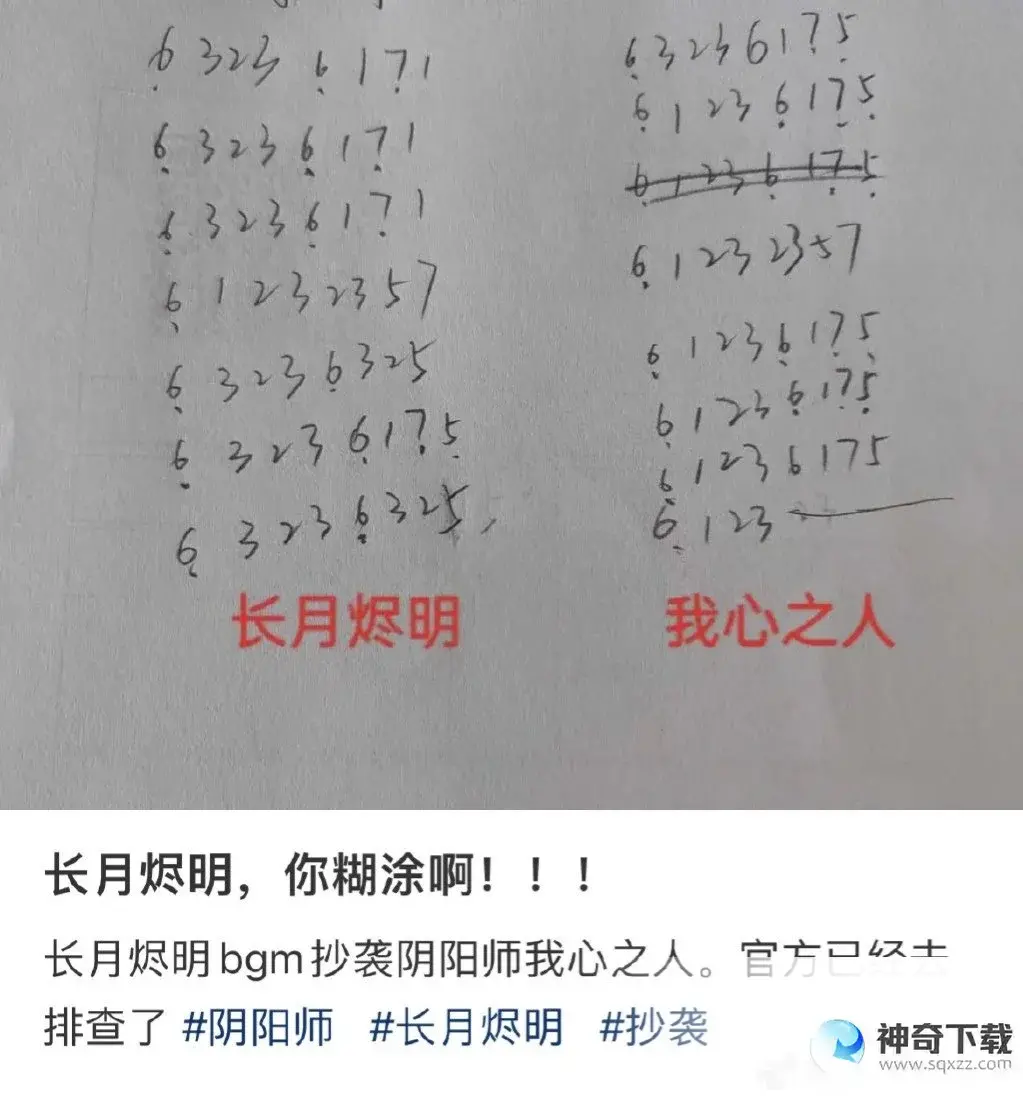 6 3 2 3 6 1 7 1
6 3 2 3 6 1 7 1
6 3 2 3 6 1 7 1
6 1 2 3 2 3 5 7
6 3 2 3 6 3 2 5
6 3 2 3 6 1 7 5
6 3 2 3 6 3 2 5
长月烬明
6 3 2 3 6 1 7 5
6 1 2 3 6 1 7 5
6 1 2 3 6 1 7 5
6 1 2 3 2 3 5 7
6 1 2 3 6 1 7 5
6 1 2 3 6 1 7 5
6 1 2 3 6 1 7 5
6 1 2 3
我心之人
长月烬明，你糊涂啊！！！
长月烬明bgm抄袭阴阳师我心之人。官方已经去
排查了 #阴阳师 #长月烬明 #抄袭
神奇下载
www.sqxzz.com